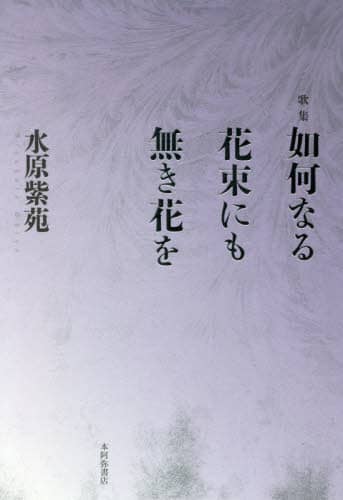 歌集
如何なる
花束にも
無き花を
水原紫苑
本阿弥書店